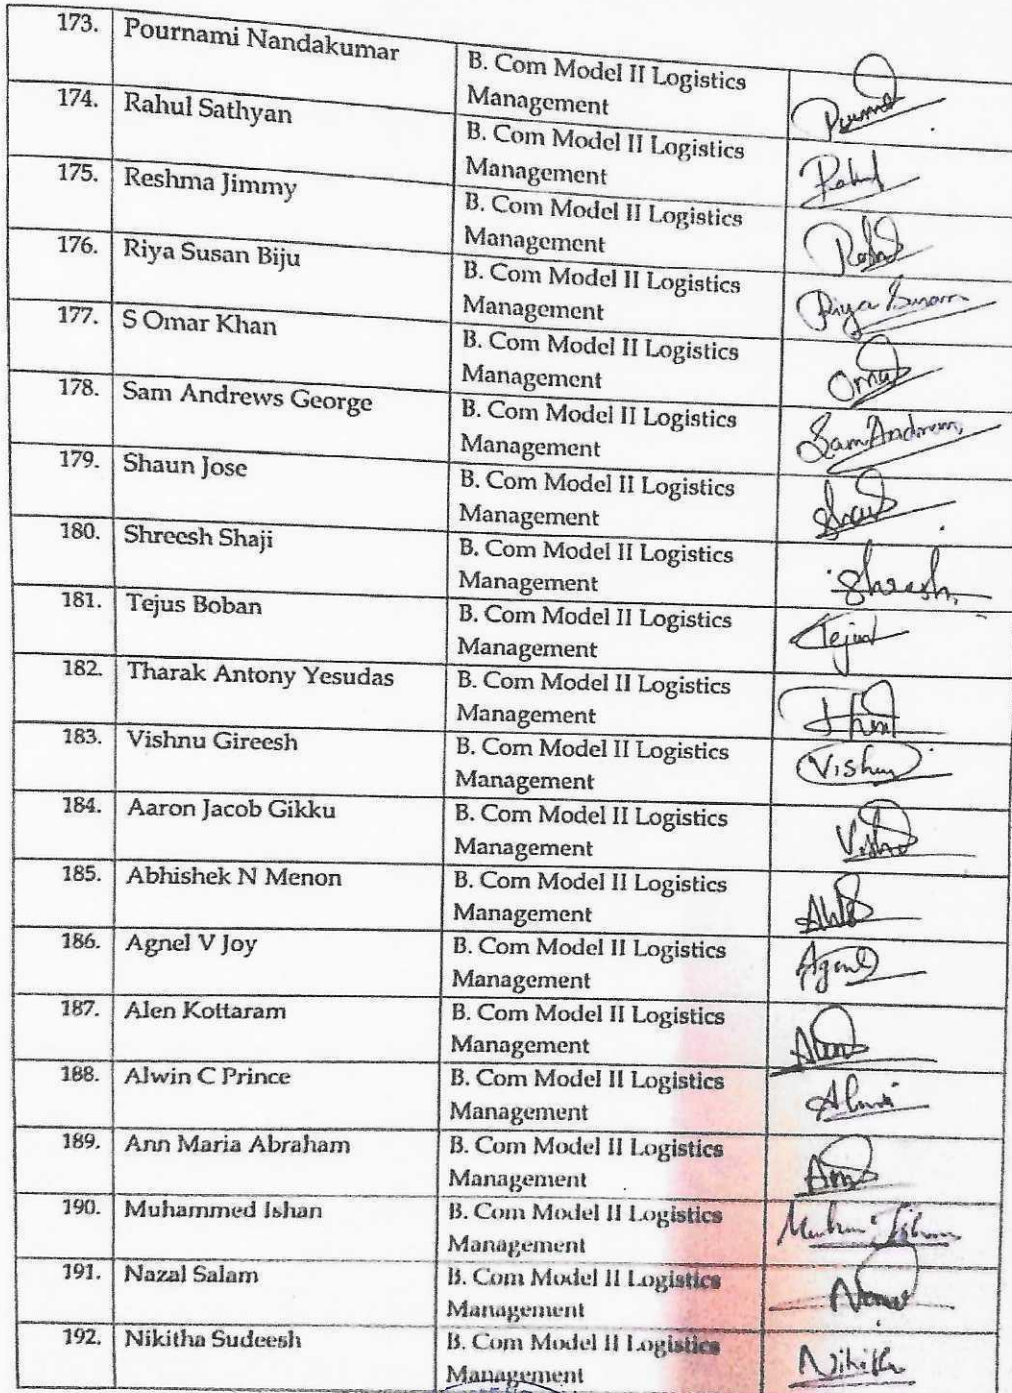 173. Pournami Nandakumar B. Com Model II Logistics
Management
174. Rahul Sathyan B. Com Model II Logistics
Management Rahul
175. Reshma Jimmy B. Com Model II Logistics
Management
176. Riya Susan Biju B. Com Model II Logistics
Management Riya Susan
177. S Omar Khan B. Com Model II Logistics
Management Omar
178. Sam Andrews George B. Com Model II Logistics
Management Sam Andrews
179. Shaun Jose B. Com Model II Logistics
Management
180. Shreesh Shaji B. Com Model II Logistics
Management Shreesh
181. Tejus Boban B. Com Model II Logistics
Management Tejus
182. Tharak Antony Yesudas B. Com Model II Logistics
Management
183. Vishnu Gireesh B. Com Model II Logistics
Management Vishnu
184. Aaron Jacob Gikku B. Com Model II Logistics
Management
185. Abhishek N Menon B. Com Model II Logistics
Management
186. Agnel V Joy B. Com Model II Logistics
Management Agnel
187. Alen Kottaram B. Com Model II Logistics
Management Alen
188. Alwin C Prince B. Com Model II Logistics
Management Alwin
189. Ann Maria Abraham B. Com Model II Logistics
Management
190. Muhammed Ishan B. Com Model II Logistics
Management
191. Nazal Salam B. Com Model II Logistics
Management
192. Nikitha Sudeesh B. Com Model II Logistics
Management Nikitha